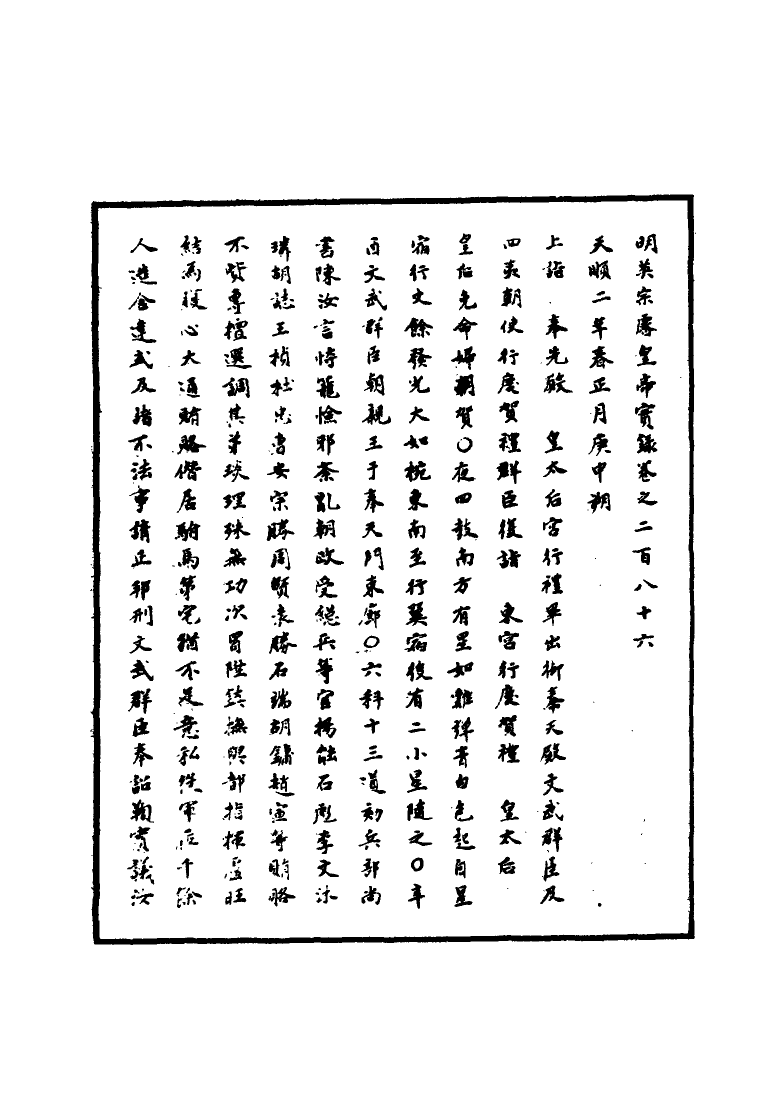 明英宗睿皇帝實錄卷之二百八十六
天順二年春正月庚申朔
上詣 奉先殿 皇太后宮行禮畢出御奉天殿文武群臣及
四夷朝使行慶賀禮群臣復詣 東宮行慶賀禮 皇太后
皇后免命婦朝賀○夜四鼓南方有星如雞彈青白色起自星
宿行丈餘發光大如椀東南至行翼宿後有二小星隨之○辛
酉文武群臣朝親王于奉天門東廊○六科十三道劾兵部尚
書陳汝言恃寵憸邪紊亂朝政受總兵等官楊能石彪李文沐
璘胡誌王楨杜忠曹安宗勝周賢袁勝石瑞胡鏞趙寅等賄賂
不貲專擅選調其弟琰理殊無功次冒陞鎮撫與都指揮盧旺
結為腹心大通賄賂僭居駙馬第宅猶不足意私役軍匠千餘
人造舍違式及諸不法事請正邦刑文武群臣奉詔鞫實議汝